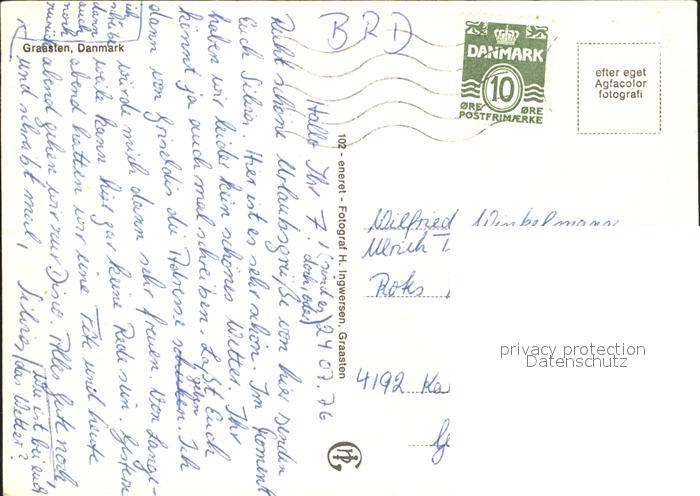 Graasten, Danmark
BRD
DANMARK
10
ØRE ØRE
POSTFRIMÆRKE
efter eget
Agfacolor
fotografi
102 - eneret - Fotograf H. Ingwersen, Graasten
Hallo Ihr 7! (sind es
doch, oder) 24.07.76
Recht schöne Urlaubsgrüße von hier senden
Euch Silvias. Hier ist es sehr schön. Im Moment
haben wir leider kein schönes Wetter. Ihr
könnt ja auch mal schreiben. Laßt Euch
dann von Griseldis die Adresse geben. Ich
würde mich dann sehr freuen. Von Lange-
weile kann hier gar keine Rede sein. Gestern
abend hatten wir eine Fete und heute
abend gehen wir zur Disco. Alles Gute noch,
und schreibt mal,
Silvias
Wie ist bei euch
das Wetter?
Wilfried Winkelmann
Ulrich
4192 Ka
privacy protection
Datenschutz